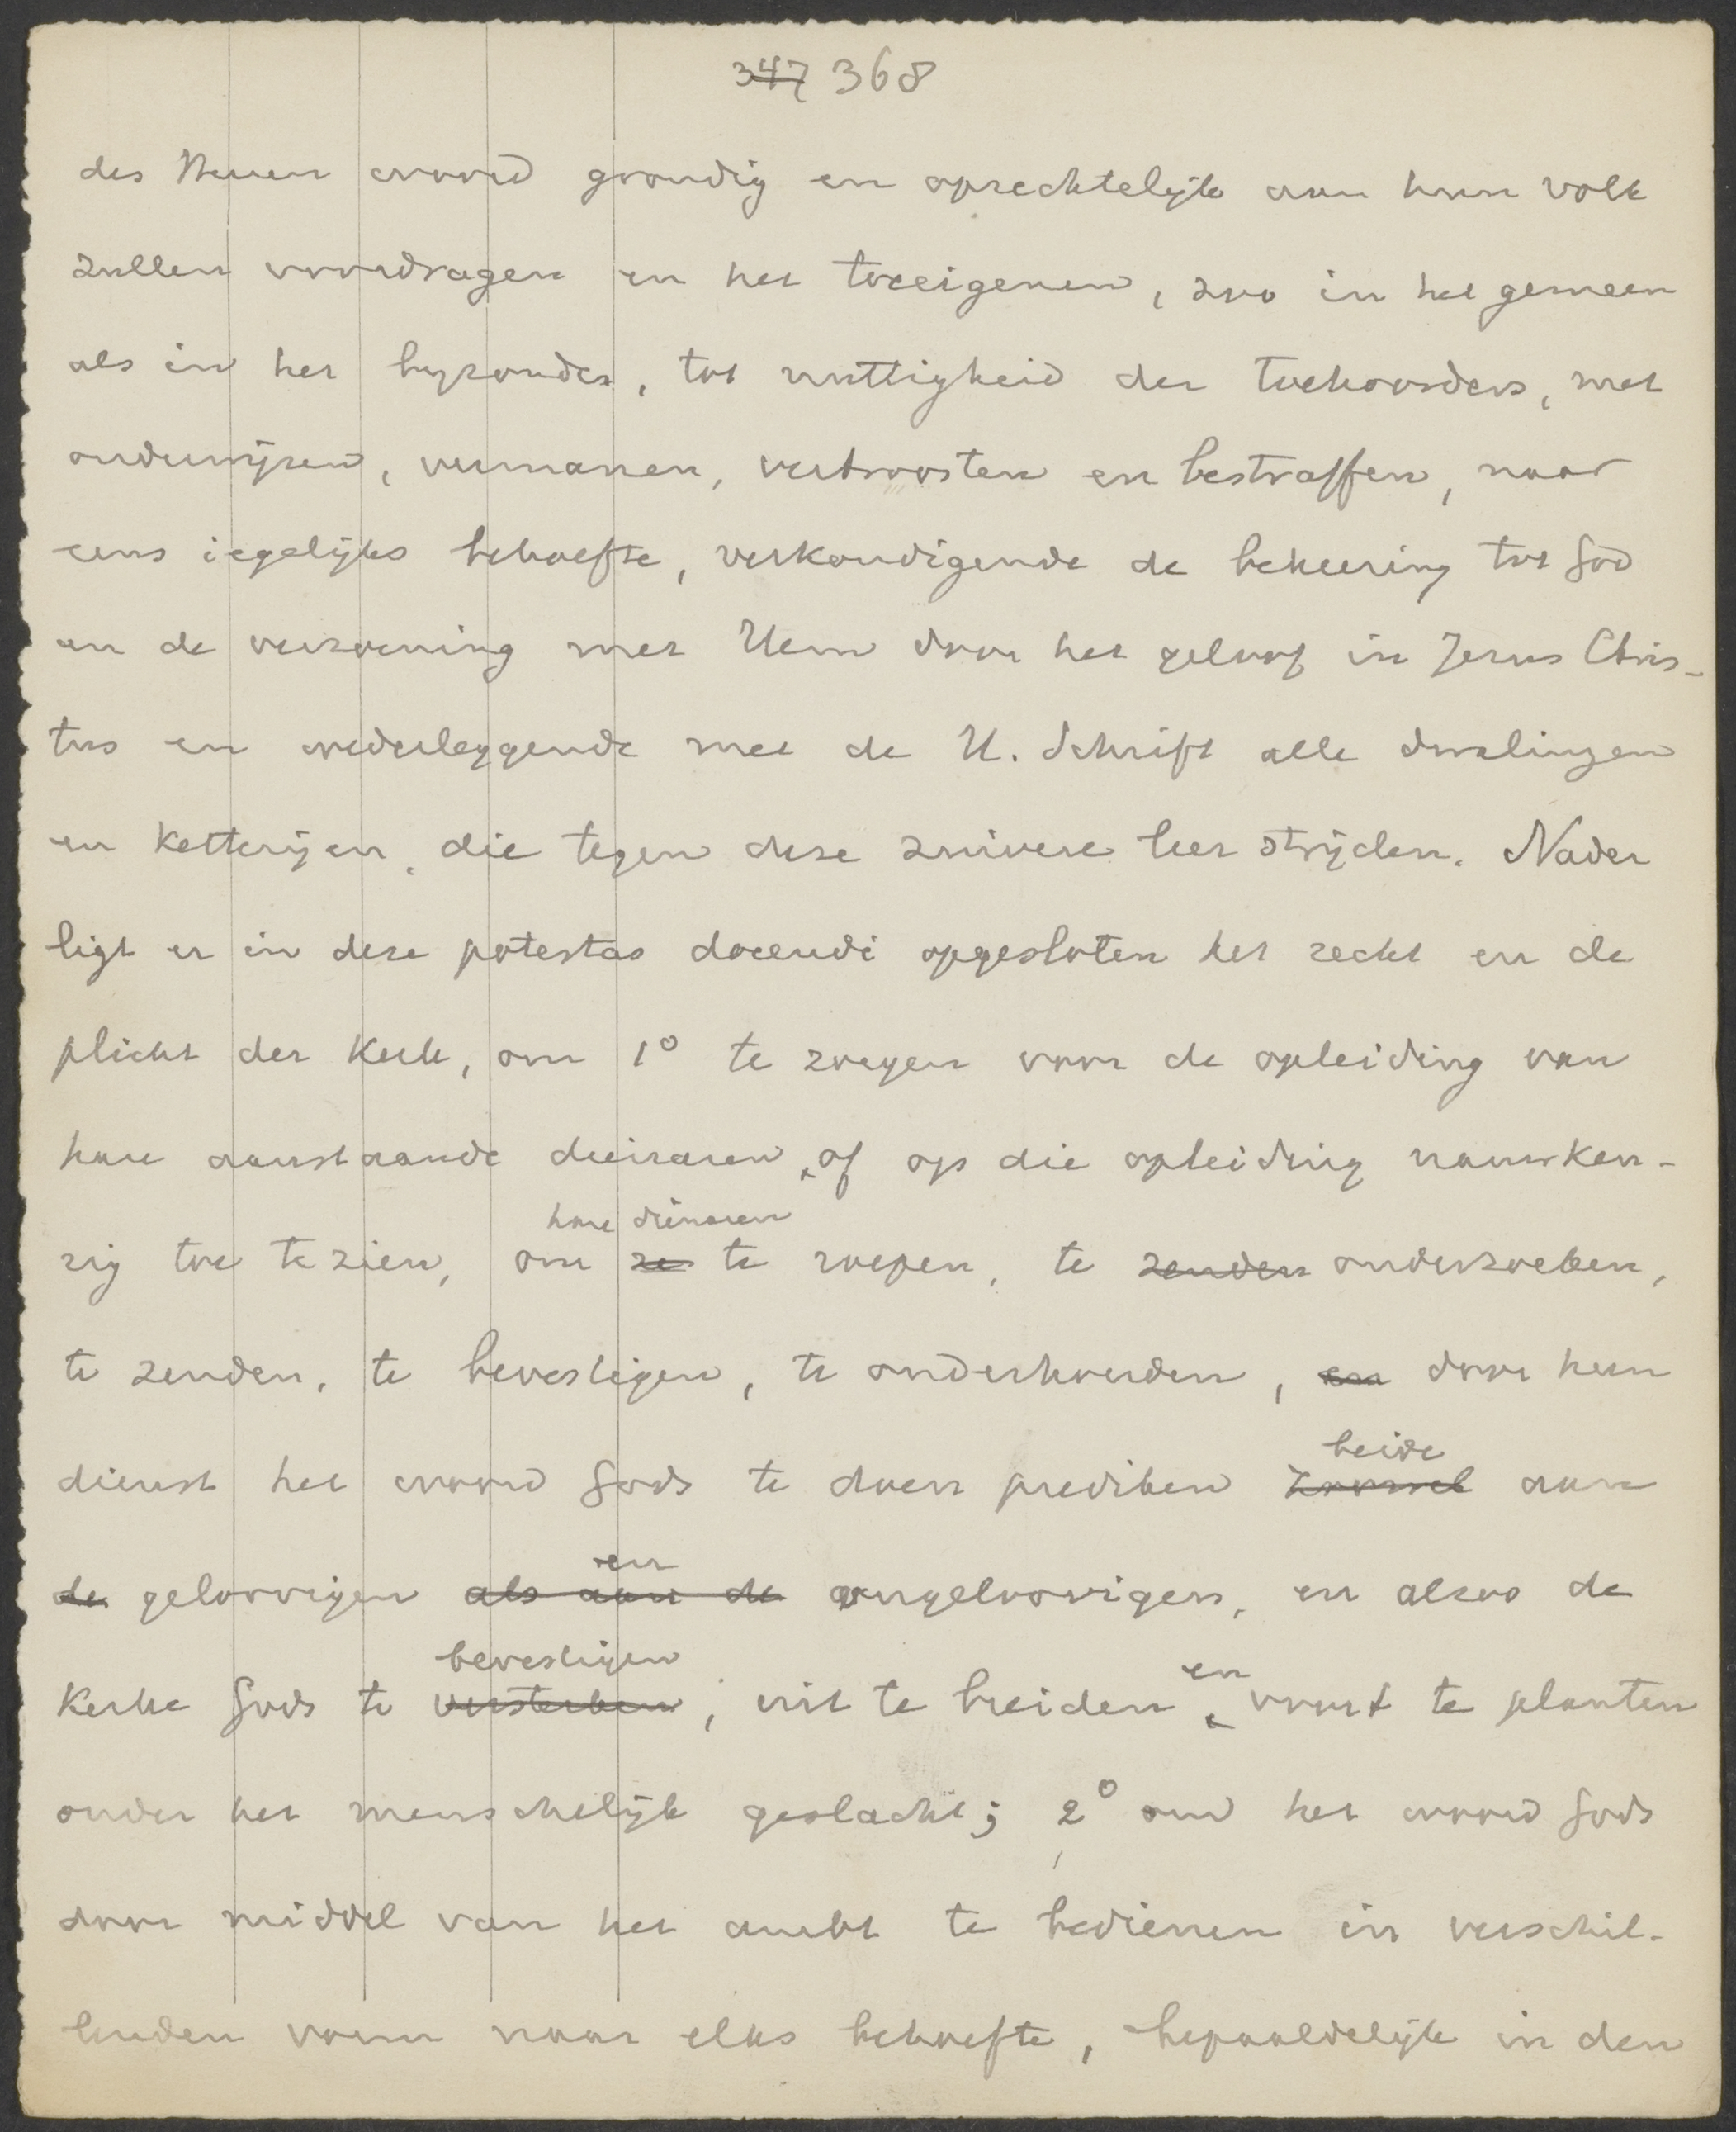 ~~347~~ 368
des Heeren woord grondig en oprechtelijk aan hun volk
zullen voordragen en het toeeigenen, zoo in het gemeen
als in het byzonder, tot nuttigheid der toehoorders, met
onderwijzen, vermanen, vertroosten en bestraffen, naar
eens iegelijks behoefte, verkondigende de bekeering tot God
en de verzoening met Hem door het geloof in Jezus Chris-
tus en wederleggende met de H. Schrift alle dwalingen
en ketterijen, die tegen deze zuivere leer strijden. Nader
ligt er in deze potestas docendi opgesloten het recht en de
plicht der kerk, om 1° te zorgen voor de opleiding van
hare aanstaande dienaren, of op die opleiding nauwkeu-
hare dienaren
rig toe te zien, om ~~ze~~ te roepen, te ~~zenden~~ onderzoeken,
te zenden, te bevestigen, te onderhouden, ~~en~~ door hun
beide
dienst het woord Gods te doen prediken ~~zoowel~~ aan
en
~~de~~ geloovigen ~~als aan de~~ ongeloovigen, en alzoo de
bevestigen en
Kerke Gods te ~~versterken~~, uit te breiden voort te planten
onder het menschelijk geslacht; 2° om het woord Gods
door middel van het ambt te bedienen in verschil-
lenden vorm naar elks behoefte, bepaaldelijk in den